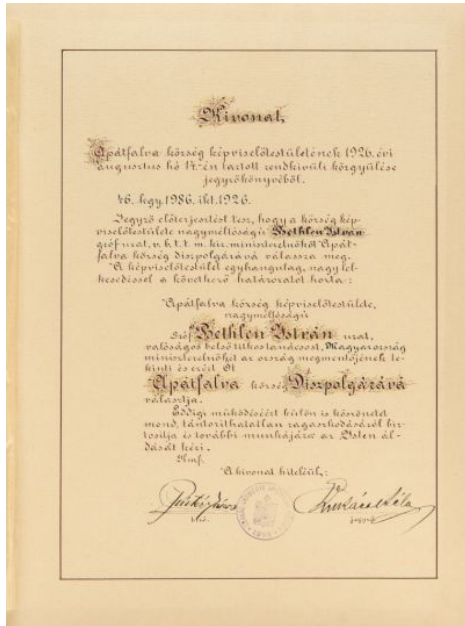 Kivonat,
Apátfalva község képviselőtestületének 1926. évi
augusztus hó 14.-én tartott rendkívüli közgyűlése
jegyzőkönyvéből.
46. kgy. 1986. ikt. 1926.
Jegyző előterjesztést tesz, hogy a község kép-
viselőtestülete nagyméltóságú Bethlen István
gróf urat, v. b. t. t. m. kir. miniszterelnököt Apát-
falva község díszpolgárává válassza meg.
A képviselőtestület egyhangulag, nagy lel-
kesedéssel a következő határozatot hozta:
Apátfalva község képviselőtestülete,
nagyméltóságú
Gróf Bethlen István urat,
valóságos belső titkos tanácsost, Magyarország
miniszterelnökét az ország megmentőjének te-
kinti és ezért Őt
Apátfalva község Díszpolgárává
választja.
Eddigi működéséért külön is köszönetet
mond, tántoríthatlan ragaszkodásáról biz-
tosítja és további munkájára az Isten ál-
dását kéri.
Kmf.
A kivonat hiteléül:
jegyző